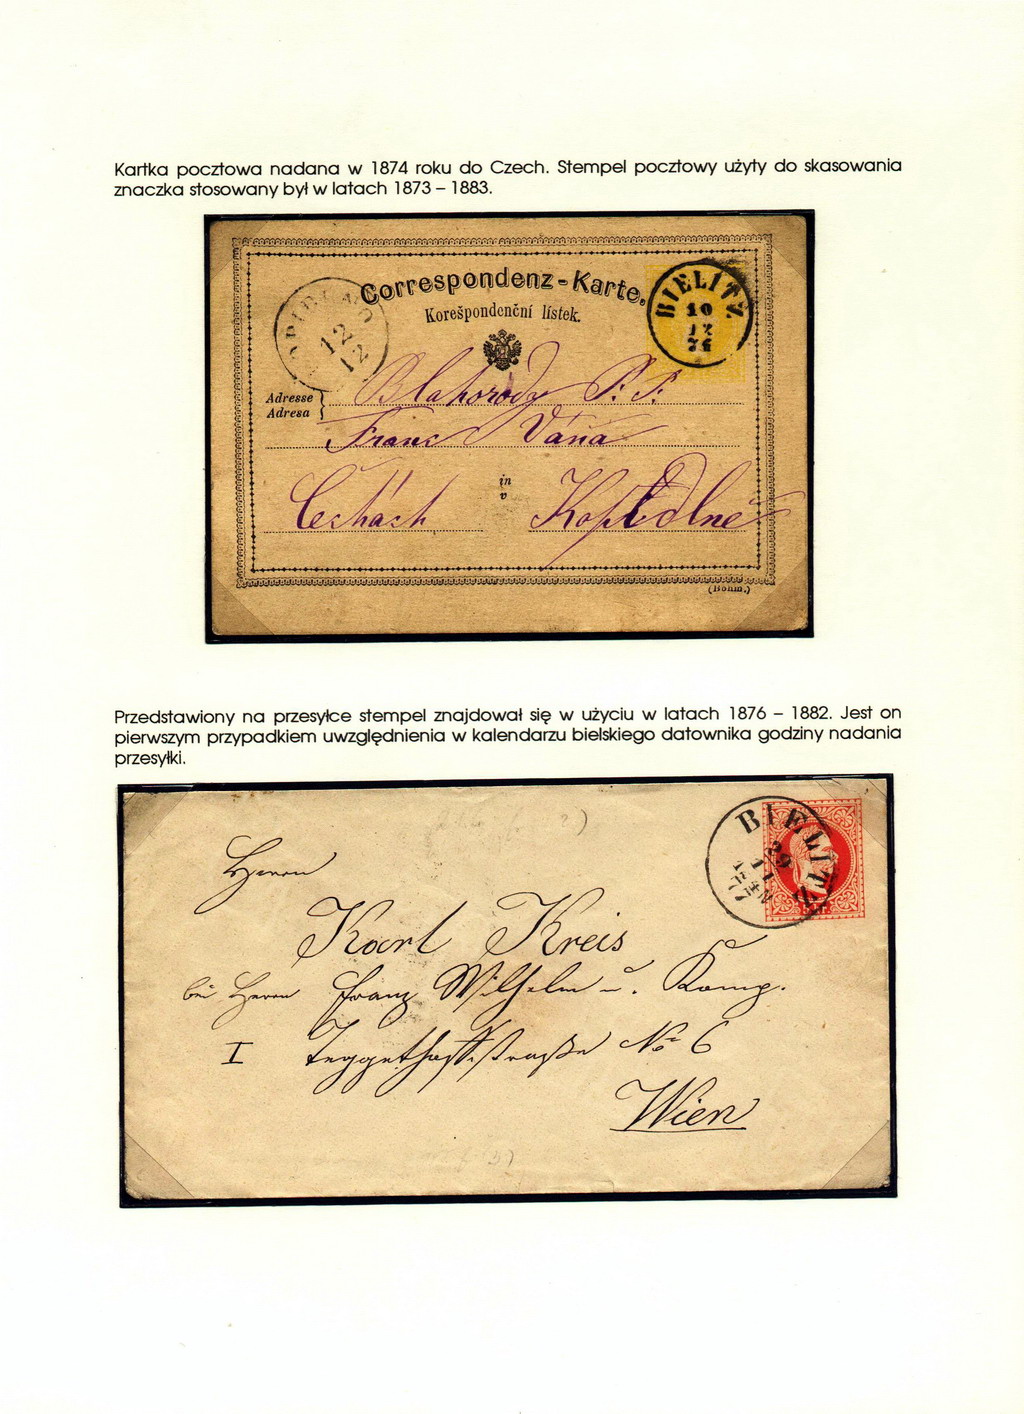 Kartka pocztowa nadana w 1874 roku do Czech. Stempel pocztowy użyty do skasowania
znaczka stosowany był w latach 1873 – 1883.
Correspondenz-Karte.
Korešpondenční lístek.
BIELITZ
10
12
74
12
12
Adresse
Adresa
Blahorody P: T:
Franc Váňa
Čechách
in
v
Kopidlně
(Böhm.)
Przedstawiony na przesyłce stempel znajdował się w użyciu w latach 1876 – 1882. Jest on
pierwszym przypadkiem uwzględnienia w kalendarzu bielskiego datownika godziny nadania
przesyłki.
BIELITZ
29
11
77
Herrn
Karl Kreis
bei Herrn Franz Wilhelm u. Komp.
I Teggethoffstraße No 6
Wien